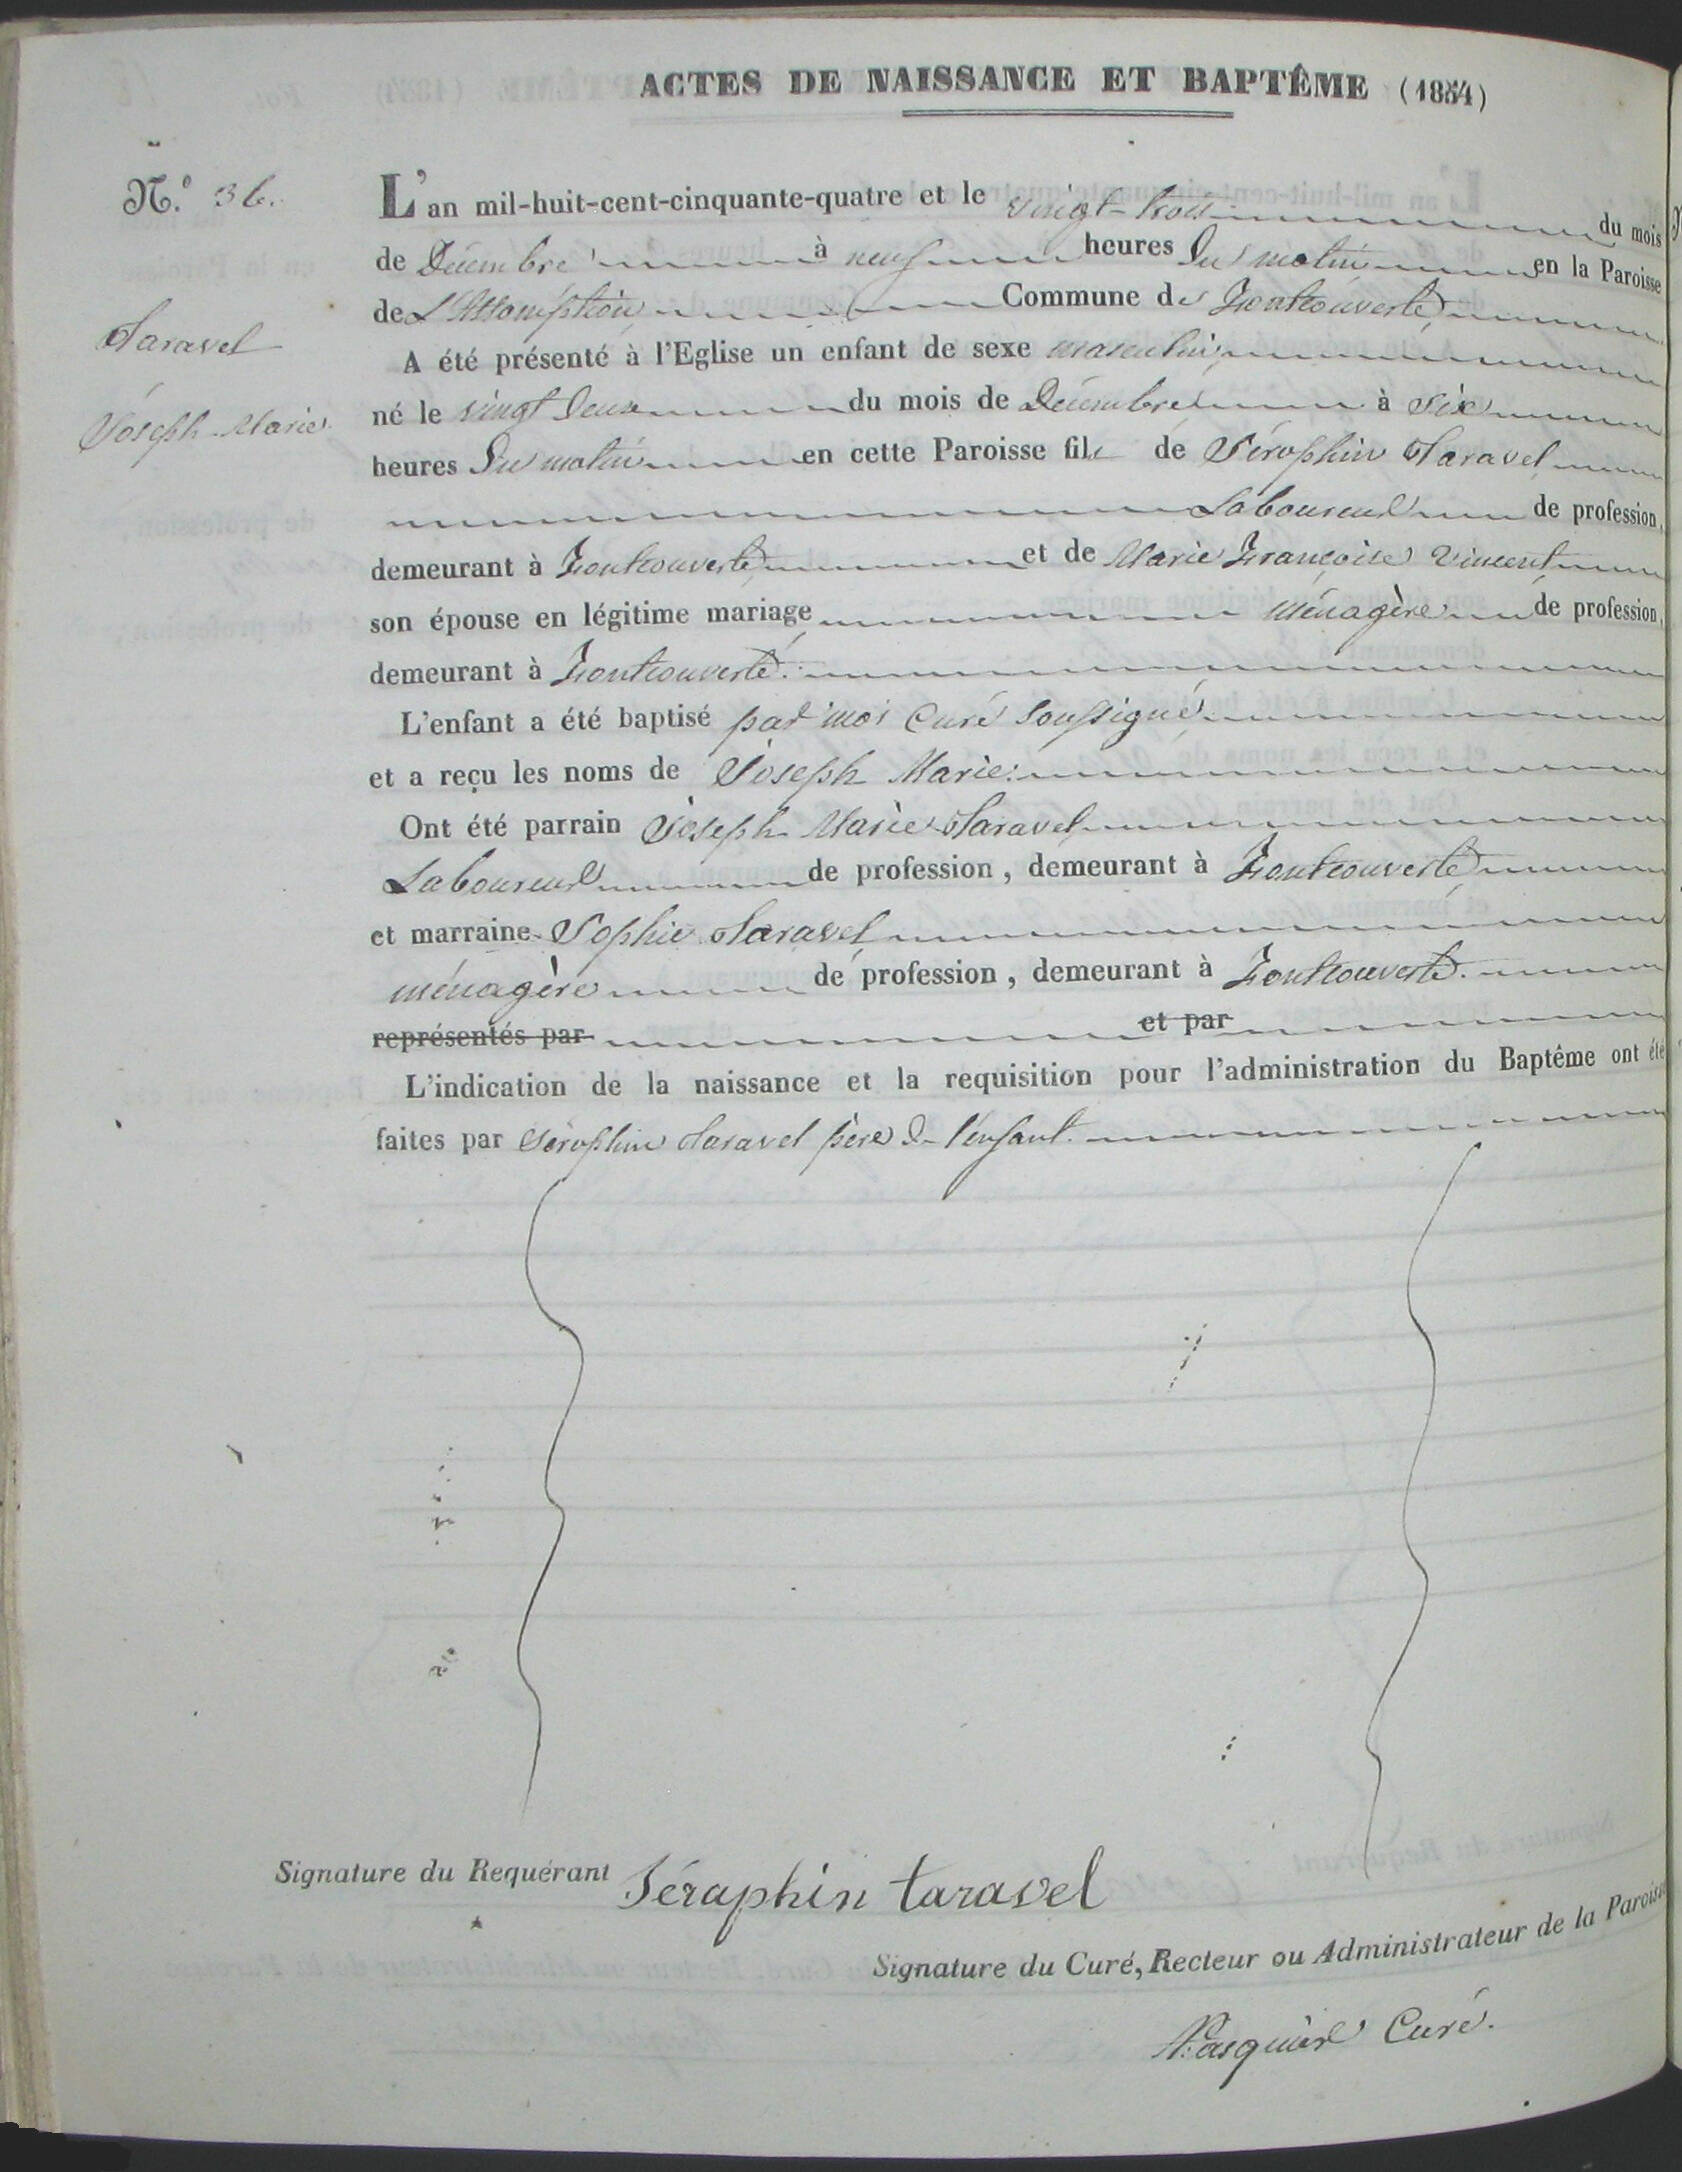 ACTES DE NAISSANCE ET BAPTÊME (1854)
N.º 36.
Taravel
Joseph-Marie
L'an mil-huit-cent-cinquante-quatre et le vingt-trois du mois
de Décembre à neuf heures du matin en la Paroisse
de L'Assomption Commune de Fontcouverte
A été présenté à l'Eglise un enfant de sexe masculin
né le vingt deux du mois de Décembre à six
heures du matin en cette Paroisse fils de Séraphin Taravel
Laboureur de profession,
demeurant à Fontcouverte et de Marie Françoise Vincent
son épouse en légitime mariage ménagère de profession,
demeurant à Fontcouverte.
L'enfant a été baptisé par moi Curé soussigné
et a reçu les noms de Joseph Marie.
Ont été parrain Joseph Marie Taravel
Laboureur de profession, demeurant à Fontcouverte
et marraine Sophie Taravel
ménagère de profession, demeurant à Fontcouverte.
représentés par et par
L'indication de la naissance et la requisition pour l'administration du Baptême ont été
faites par Séraphin Taravel père de l'enfant.
Signature du Requérant Séraphin taravel
Signature du Curé, Recteur ou Administrateur de la Paroisse
Pasquier Curé.